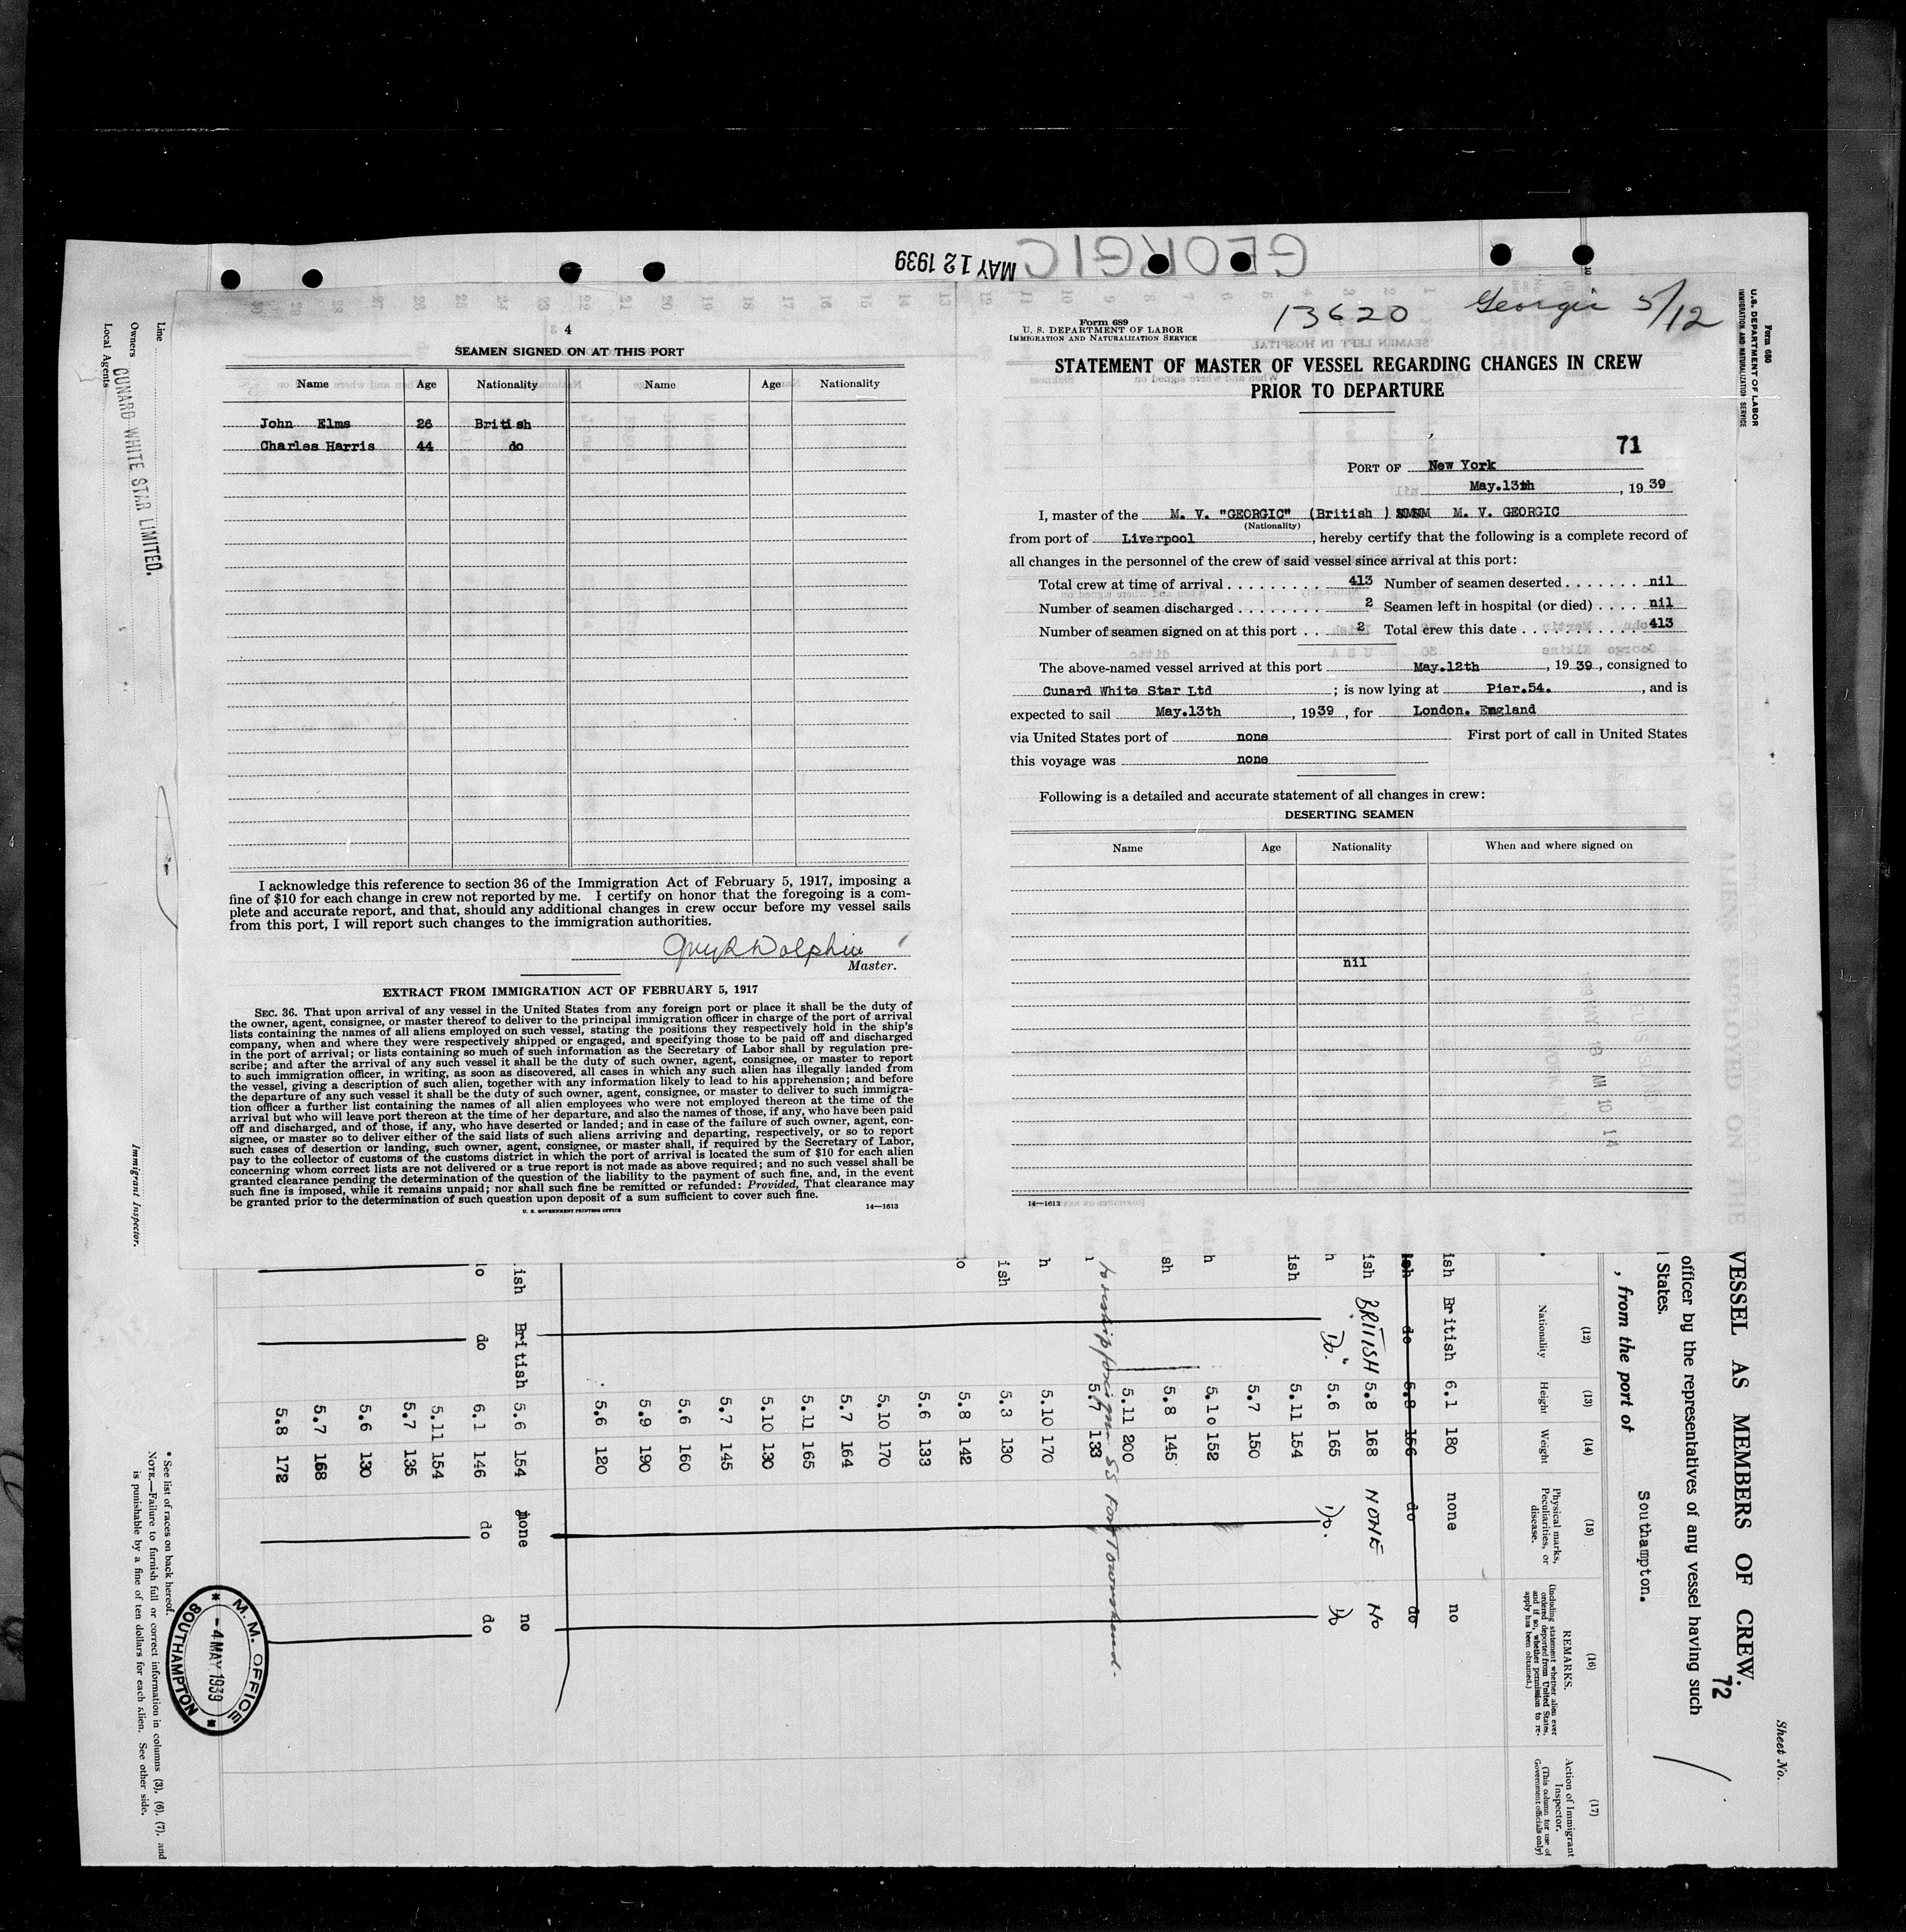 GEORGIC
MAY 12 1939
4
SEAMEN SIGNED ON AT THIS PORT
Name Age Nationality Name Age Nationality
John Elms 26 British
Charles Harris 44 do
I acknowledge this reference to section 36 of the Immigration Act of February 5, 1917, imposing a
fine of $10 for each change in crew not reported by me. I certify on honor that the foregoing is a com-
plete and accurate report, and that, should any additional changes in crew occur before my vessel sails
from this port, I will report such changes to the immigration authorities.
Master.
EXTRACT FROM IMMIGRATION ACT OF FEBRUARY 5, 1917
SEC. 36. That upon arrival of any vessel in the United States from any foreign port or place it shall be the duty of
the owner, agent, consignee, or master thereof to deliver to the principal immigration officer in charge of the port of arrival
lists containing the names of all aliens employed on such vessel, stating the positions they respectively hold in the ship's
company, when and where they were respectively shipped or engaged, and specifying those to be paid off and discharged
in the port of arrival; or lists containing so much of such information as the Secretary of Labor shall by regulation pre-
scribe; and after the arrival of any such vessel it shall be the duty of such owner, agent, consignee, or master to report
to such immigration officer, in writing, as soon as discovered, all cases in which any such alien has illegally landed from
the vessel, giving a description of such alien, together with any information likely to lead to his apprehension; and before
the departure of any such vessel it shall be the duty of such owner, agent, consignee, or master to deliver to such immigra-
tion officer a further list containing the names of all alien employees who were not employed thereon at the time of the
arrival but who will leave port thereon at the time of her departure, and also the names of those, if any, who have been paid
off and discharged, and of those, if any, who have deserted or landed; and in case of the failure of such owner, agent, con-
signee, or master so to deliver either of the said lists of such aliens arriving and departing, respectively, or so to report
such cases of desertion or landing, such owner, agent, consignee, or master shall, if required by the Secretary of Labor,
pay to the collector of customs of the customs district in which the port of arrival is located the sum of $10 for each alien
concerning whom correct lists are not delivered or a true report is not made as above required; and no such vessel shall be
granted clearance pending the determination of the question of the liability to the payment of such fine, and, in the event
such fine is imposed, while it remains unpaid; nor shall such fine be remitted or refunded: Provided, That clearance may
be granted prior to the determination of such question upon deposit of a sum sufficient to cover such fine.
U. S. GOVERNMENT PRINTING OFFICE 14—1613
13620 Georgic 5/12
Form 689
U. S. DEPARTMENT OF LABOR
IMMIGRATION AND NATURALIZATION SERVICE
STATEMENT OF MASTER OF VESSEL REGARDING CHANGES IN CREW
PRIOR TO DEPARTURE
71
PORT OF New York
May.13th , 19 39
I, master of the M. V. "GEORGIC" (British ) M. V. GEORGIC
(Nationality)
from port of Liverpool , hereby certify that the following is a complete record of
all changes in the personnel of the crew of said vessel since arrival at this port:
Total crew at time of arrival . . . . . . . . . 413 Number of seamen deserted . . . . . . . nil
Number of seamen discharged . . . . . . . . 2 Seamen left in hospital (or died) . . . . nil
Number of seamen signed on at this port . . 2 Total crew this date . . . . . . . . . . . 413
The above-named vessel arrived at this port May.12th , 19 39 , consigned to
Cunard White Star Ltd ; is now lying at Pier.54. , and is
expected to sail May.13th , 19 39 , for London. England
via United States port of none First port of call in United States
this voyage was none
Following is a detailed and accurate statement of all changes in crew:
DESERTING SEAMEN
Name Age Nationality When and where signed on
nil
14—1613
Line
Owners CUNARD WHITE STAR LIMITED.
Local Agents
Immigrant Inspector.
Form 680
U. S. DEPARTMENT OF LABOR
IMMIGRATION AND NATURALIZATION SERVICE
Sheet No.
VESSEL AS MEMBERS OF CREW.
72
officer by the representatives of any vessel having such
States.
, from the port of Southampton.
(12) (13) (14) (15) (16) (17)
Nationality Height Weight Physical marks, Peculiarities, or disease. REMARKS. (Including statement whether alien ever ordered deported from United States, and if so, whether permission to re-apply has been obtained.) Action of Immigrant Inspector. (This column for use of Government officials only)
ish British 6.1 180 none no
ish do 5.8 156 do do
ish BRITISH 5.8 168 NONE NO
h Do. 5.6 165 Do. Do
ish 5.11 154
5.7 150
h 5.10 152
sh 5.8 145
5.11 200
5.7 133
to reship foreign SS Fort Townshend.
h 5.10 170
ish 5.3 130
do 5.8 142
5.6 133
5.10 170
5.7 164
5.11 165
5.10 130
5.7 145
5.6 160
5.9 190
5.6 120
ish British 5.6 154 none no
do do 6.1 146 do do
5.11 154
5.7 135
5.6 130
5.7 168
5.8 172
* See list of races on back hereof.
NOTE.—Failure to furnish full or correct information in columns (3), (6), (7), and
is punishable by a fine of ten dollars for each alien. See other side.
M. M. OFFICE
- 4 MAY 1939
SOUTHAMPTON